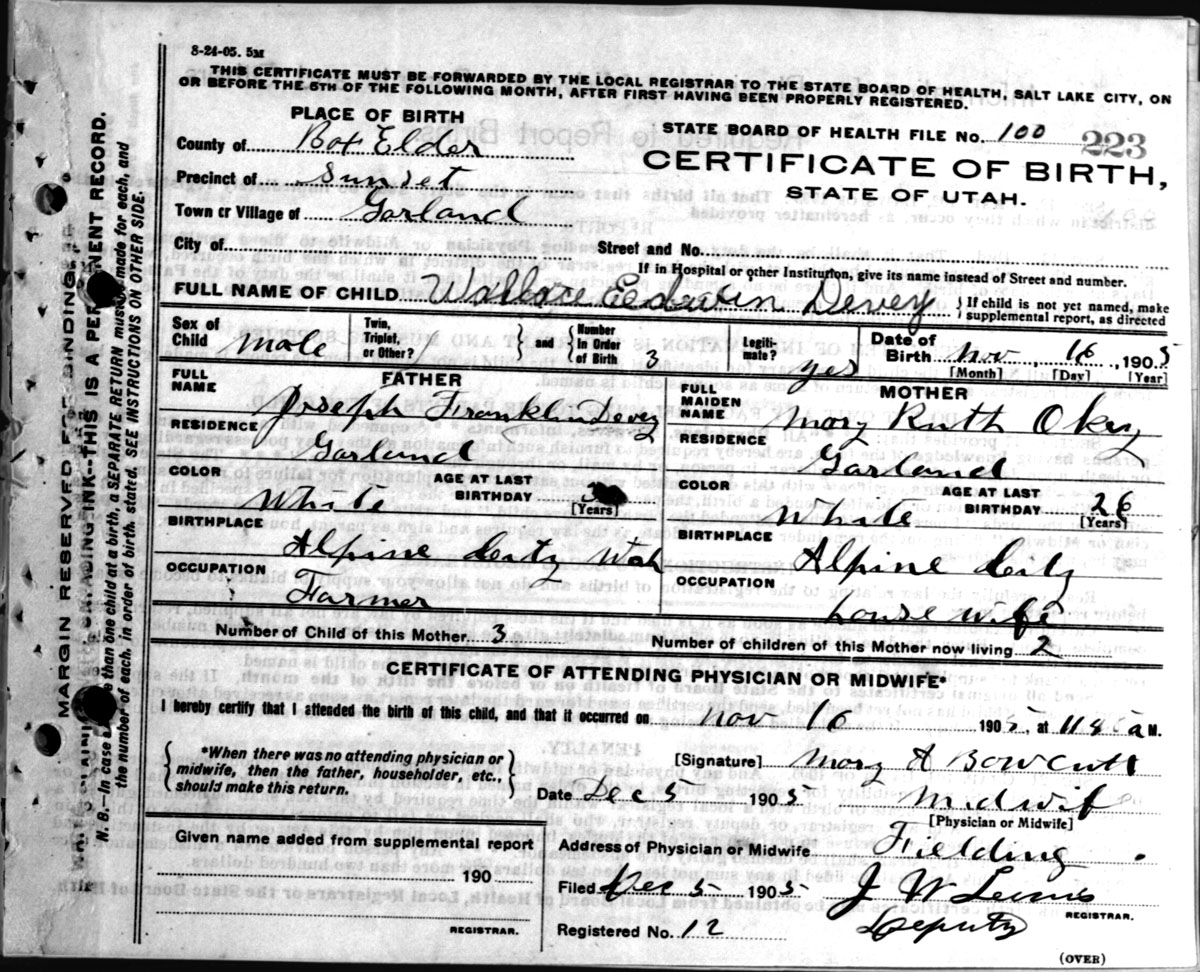 8-24-05. 5M
THIS CERTIFICATE MUST BE FORWARDED BY THE LOCAL REGISTRAR TO THE STATE BOARD OF HEALTH, SALT LAKE CITY, ON
OR BEFORE THE 5TH OF THE FOLLOWING MONTH, AFTER FIRST HAVING BEEN PROPERLY REGISTERED.
PLACE OF BIRTH
County of Box Elder
Precinct of Sunset
Town or Village of Garland
City of
STATE BOARD OF HEALTH FILE No. 100 223
CERTIFICATE OF BIRTH,
STATE OF UTAH.
Street and No.
If in Hospital or other Institution, give its name instead of Street and number.
FULL NAME OF CHILD Wallace Eedwin Devey } If child is not yet named, make
supplemental report, as directed
Sex of Child male Twin, Triplet, or Other? } and { Number in Order of Birth 3 Legiti-mate? yes Date of Birth Nov 16, 1905
[Month] [Day] [Year]
FATHER
FULL NAME Joseph Franklin Devey
RESIDENCE Garland
COLOR White AGE AT LAST BIRTHDAY
[Years]
BIRTHPLACE Alpine City Utah
OCCUPATION Farmer
MOTHER
FULL MAIDEN NAME Mary Ruth Okey
RESIDENCE Garland
COLOR White AGE AT LAST BIRTHDAY 26
(Years)
BIRTHPLACE Alpine City
OCCUPATION house wife
Number of Child of this Mother 3 Number of children of this Mother now living 2
CERTIFICATE OF ATTENDING PHYSICIAN OR MIDWIFE*
I hereby certify that I attended the birth of this child, and that it occurred on Nov 16 1905, at 1145 a M.
{ *When there was no attending physician or
midwife, then the father, householder, etc.,
should make this return. }
[Signature] Mary A Bowcutt
Date Dec 5 1905 Midwif
[Physician or Midwife]
Given name added from supplemental report
190
REGISTRAR.
Address of Physician or Midwife Fielding
Filed Dec 5 1905 J W Lewis
REGISTRAR.
Registered No. 12 Deputy
(OVER)
MARGIN RESERVED FOR BINDING
INK--THIS IS A PERMENENT RECORD.
N. B.--In case more than one child at a birth, a SEPARATE RETURN must be made for each, and
the number of each, in order of birth, stated. SEE INSTRUCTIONS ON OTHER SIDE.